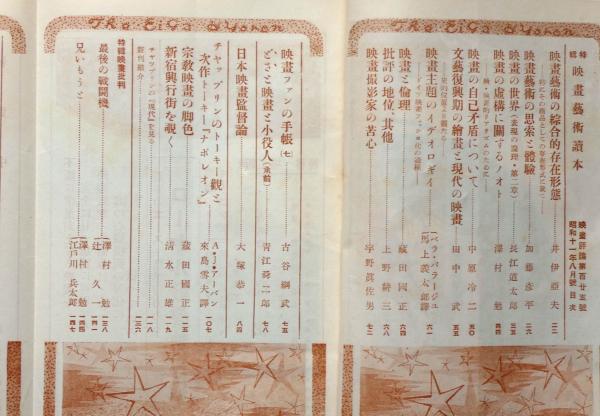 The Eiga Hyoron
映畫評論第百廿五號
昭和十一年八月號 目次
特輯 映畫藝術讀本
映畫藝術の綜合的存在形態 井伊亞夫 二二
映畫藝術の思索と體驗 加藤彦平 二六
映畫の世界(表現の論理・第二章) 長江道太郎 三五
映畫の虚構に關するノオト 澤村勉 四四
映畫の自己矛盾について 中原冷二 五〇
文藝復興期の繪畫と現代の映畫 田中武 五五
映畫主題のイデオロギイ ベラ・バラージュ 馬上義太郎譯 六〇
映畫と倫理 藏田國正 六四
批評の地位、其他 上野耕三 六八
映畫撮影家の苦心 宇野眞佐男 七二
The Eiga Hyoron
映畫ファンの手帳(七) 古谷綱武 七五
どさと映畫と小役人(承前) 青江舜二郎 七八
日本映畫監督論 大塚恭一 八四
チャップリンのトーキー觀と
次作トーキー『ナポレオン』 A・J・アーバン 來島雪夫譯 一〇七
宗教映畫の脚色 藏田國正 一一五
新宿興行街を覗く 清水正雄 一一九
チャップリンの「現代」を見る 一一八
新刊紹介 一三六
特輯映畫批判
最後の戰鬪機 澤村勉 一三八
辻久一 一四一
兄いもうと 澤村勉 一四四
江戸川兵太郎 一四七